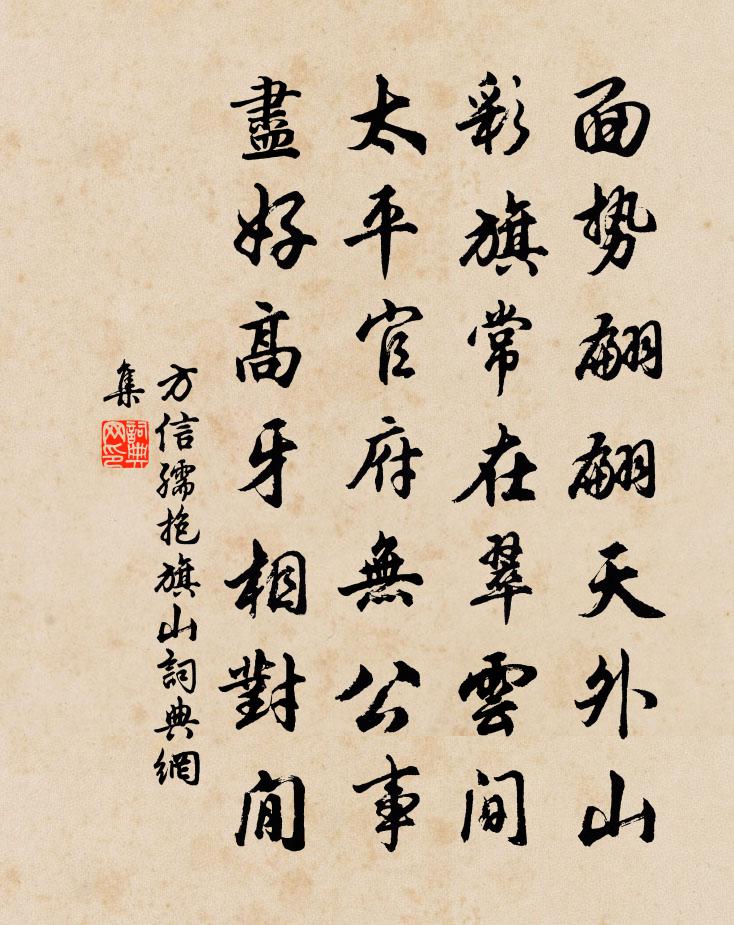 面势翩翩天外山
彩旗常在翠雲間
太平官府無公事
盡好高牙相對閒
方信孺抱旗山詞典網
集
詞典网印